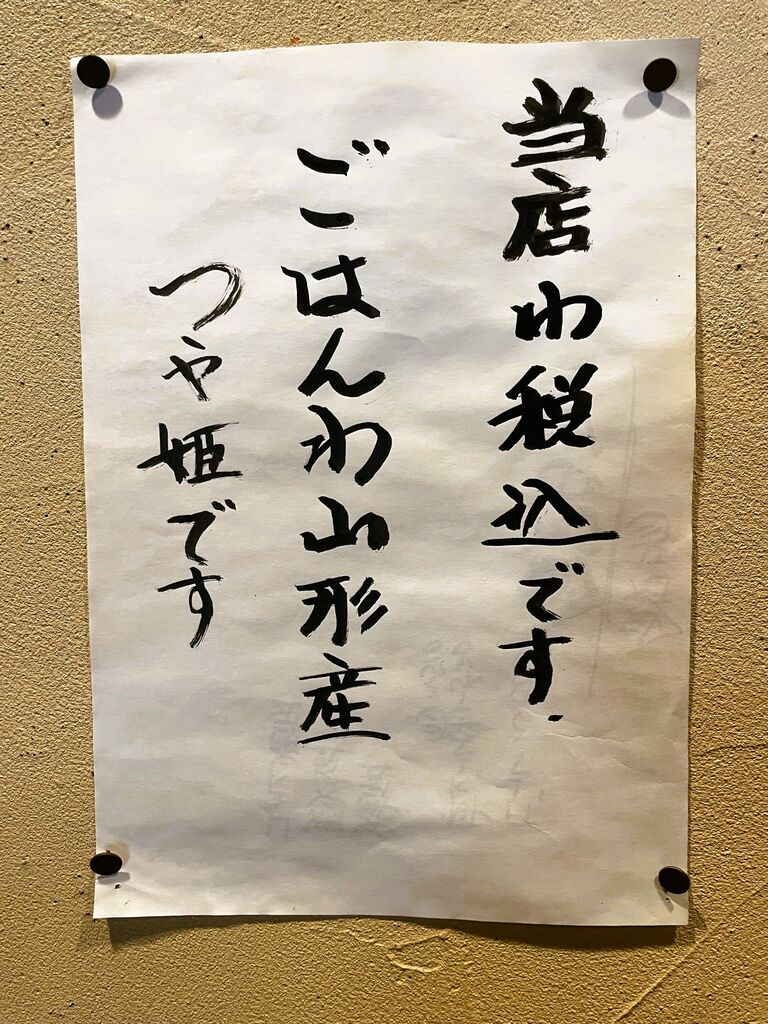 当店わ税込です.
ごはんわ山形産
つや姫です